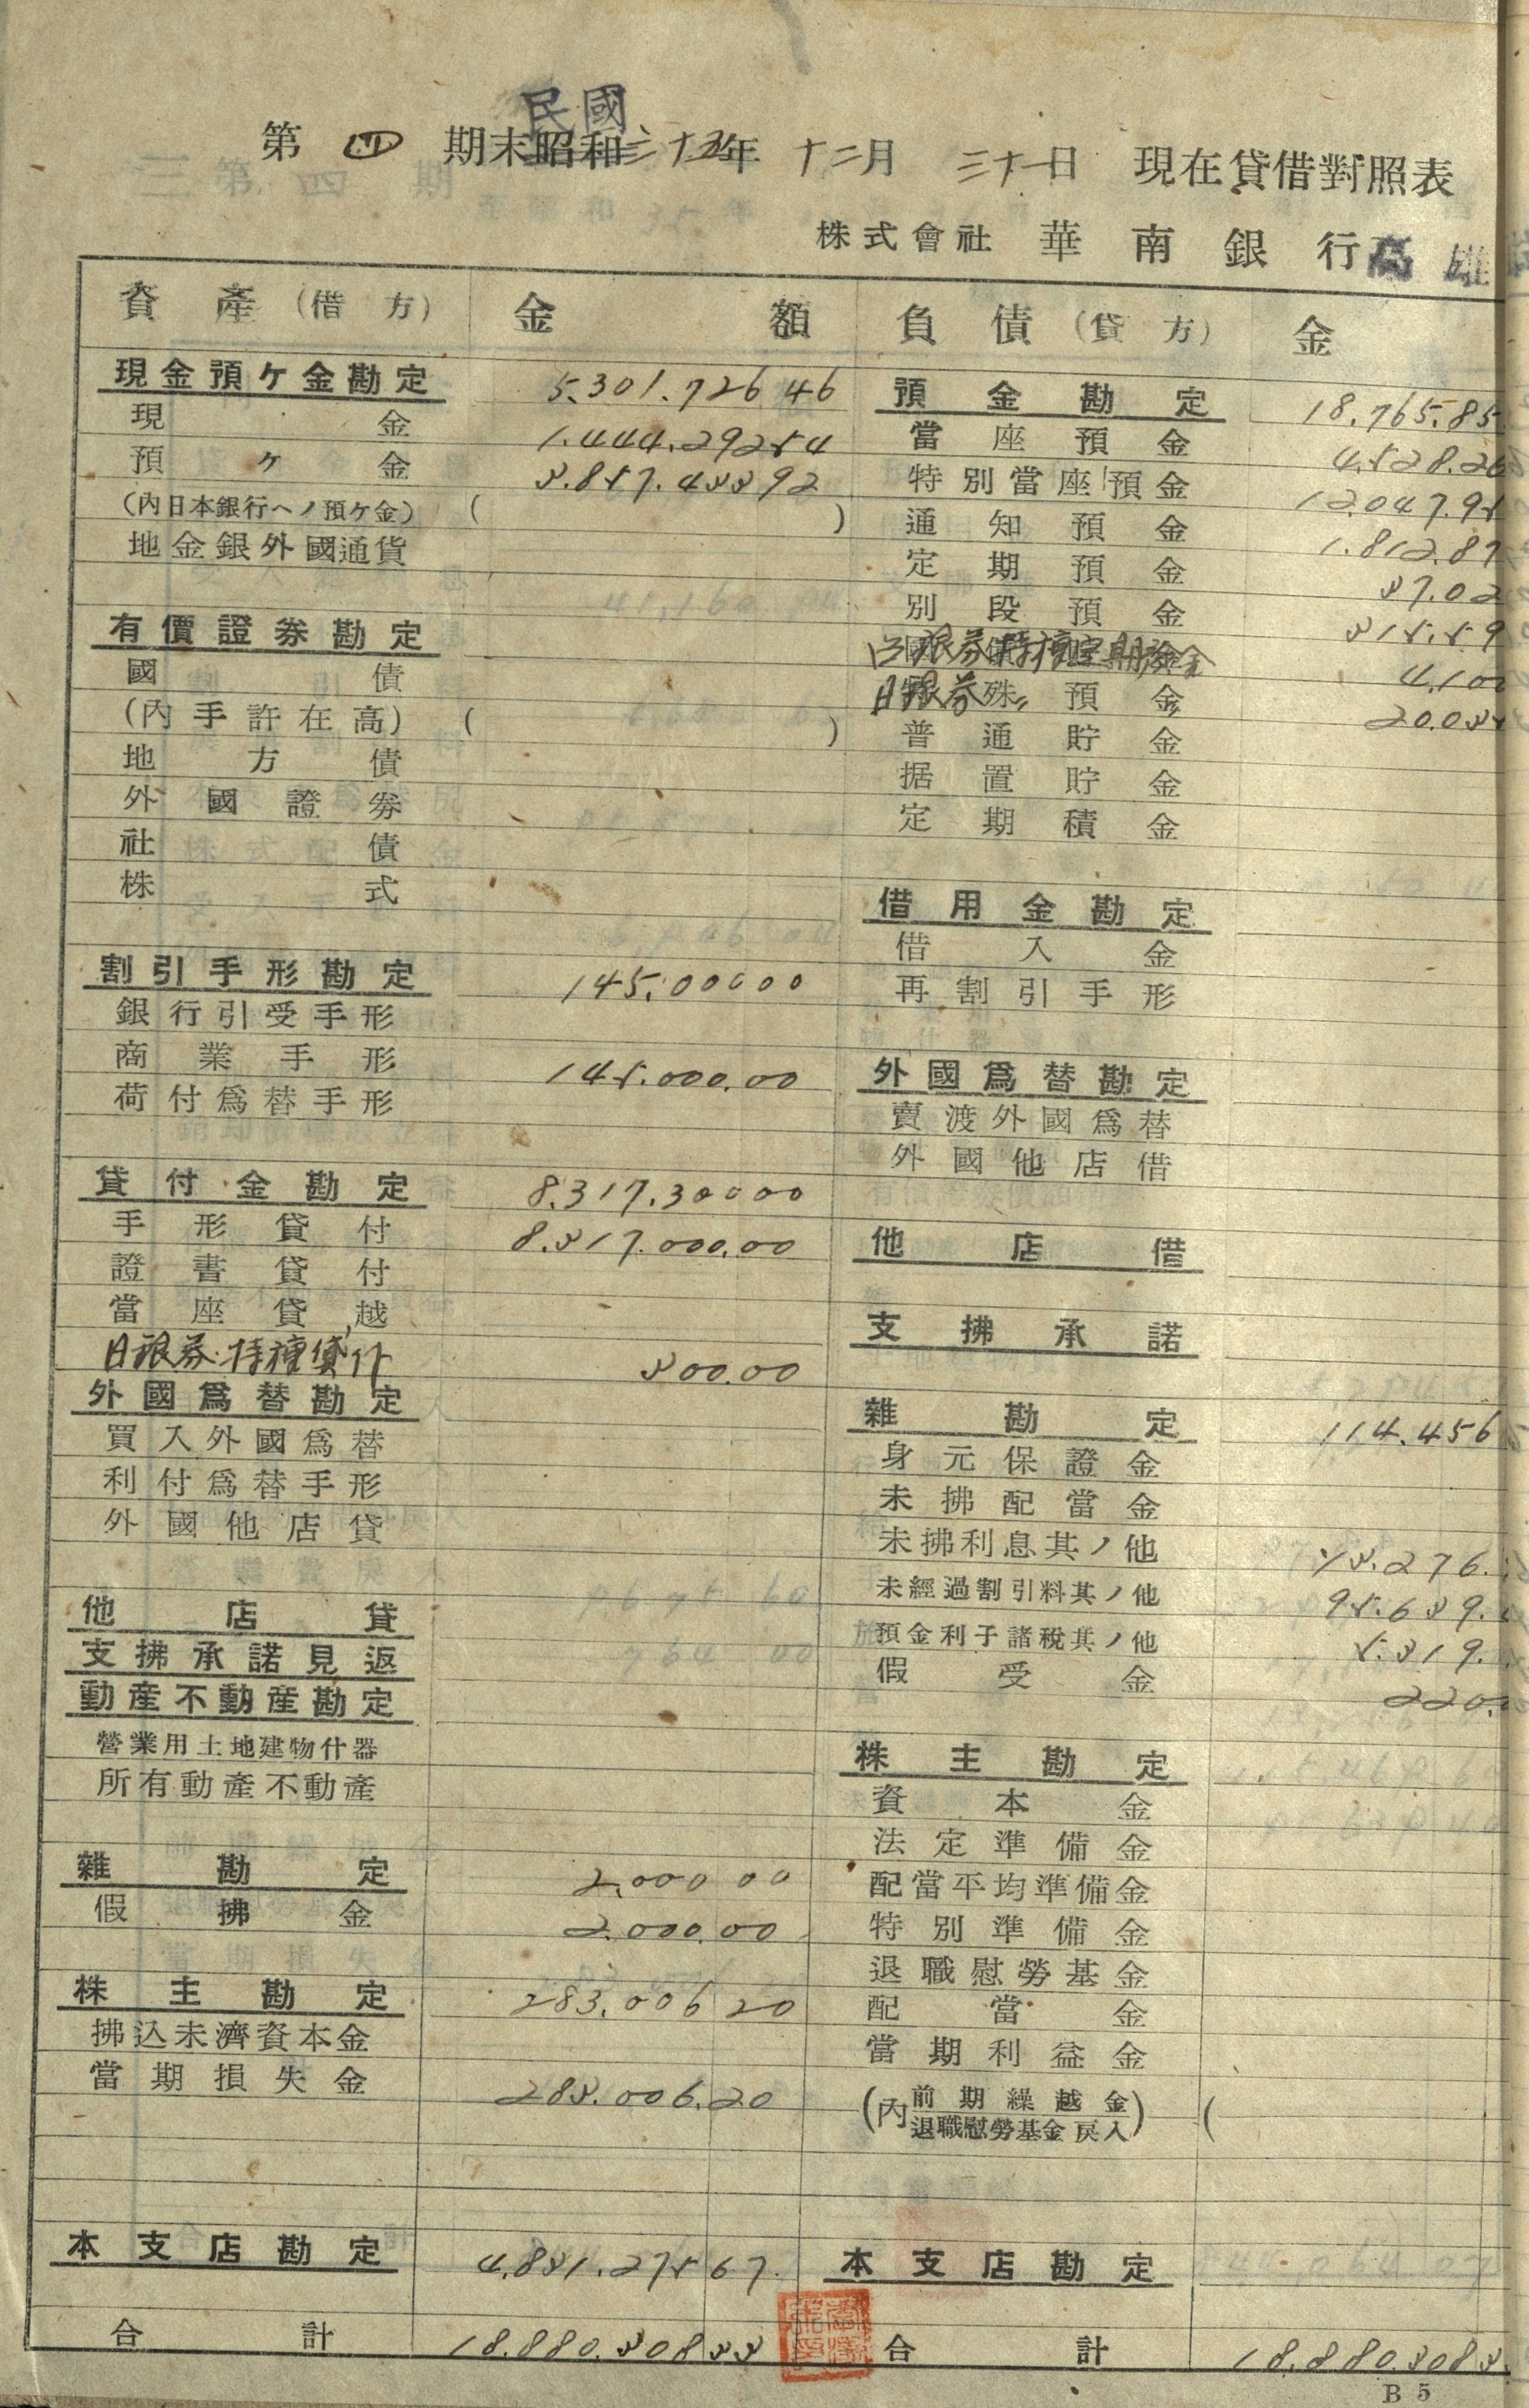 第 四 期末昭和民國三十五年 十二月 三十一日 現在貸借對照表
株式會社 華南銀行高雄
資產(借方) 金額
現金預ケ金勘定 5.301.726 46
現金 1.444.292 54
預ケ金 3.857.433 92
(內日本銀行ヘノ預ケ金) ( )
地金銀外國通貨
有價證券勘定
國債
(內手許在高) ( )
地方債
外國證券
社債
株式
割引手形勘定 145.000 00
銀行引受手形
商業手形 145.000.00
荷付爲替手形
貸付金勘定 8.317.300 00
手形貸付 8.317.000.00
證書貸付
當座貸越
日銀券特種貸付 300.00
外國爲替勘定
買入外國爲替
利付爲替手形
外國他店貸
他店貸
支拂承諾見返
動產不動產勘定
營業用土地建物什器
所有動產不動產
雜勘定 2.000 00
假拂金 2.000.00
株主勘定 283.006 20
拂込未濟資本金
當期損失金 283.006.20
本支店勘定 4.831.275 67
合計 18.880.308 33
負債(貸方) 金
預金勘定 18.765.85
當座預金 4.528.26
特別當座預金 12.047.95
通知預金 1.812.87
定期預金 37.02
別段預金 315.59
日銀券特種定期預金 4.100
日銀券特殊預金 20.035
普通貯金
据置貯金
定期積金
借用金勘定
借入金
再割引手形
外國爲替勘定
賣渡外國爲替
外國他店借
他店借
支拂承諾
雜勘定 114.456
身元保證金
未拂配當金
未拂利息其ノ他 13.276.
未經過割引料其ノ他 95.639.
預金利子諸稅其ノ他 5.319.
假受金 220.
株主勘定
資本金
法定準備金
配當平均準備金
特別準備金
退職慰勞基金
配當金
當期利益金
(內前期繰越金 退職慰勞基金戾入) (
本支店勘定
合計 18.880.308 3
B 5